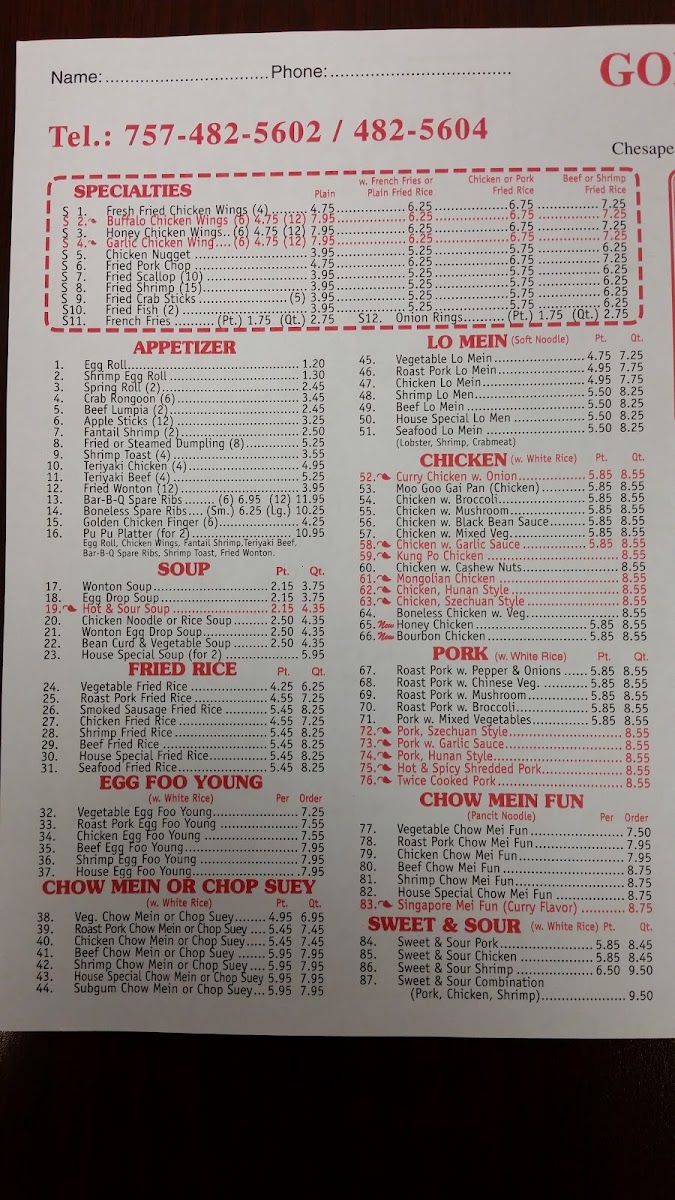 Name:................................Phone:...................................
GO
Tel.: 757-482-5602 / 482-5604
Chesape
SPECIALTIES Plain w. French Fries or Plain Fried Rice Chicken or Pork Fried Rice Beef or Shrimp Fried Rice
S 1. Fresh Fried Chicken Wings (4) 4.75 6.25 6.75 7.25
S 2. Buffalo Chicken Wings (6) 4.75 (12) 7.95 6.25 6.75 7.25
S 3. Honey Chicken Wings.. (6) 4.75 (12) 7.95 6.25 6.75 7.25
S 4. Garlic Chicken Wing.... (6) 4.75 (12) 7.95 6.25 6.75 7.25
S 5. Chicken Nugget 3.95 5.25 5.75 6.25
S 6. Fried Pork Chop 4.75 6.25 6.75 7.25
S 7. Fried Scallop (10) 3.95 5.25 5.75 6.25
S 8. Fried Shrimp (15) 3.95 5.25 5.75 6.25
S 9. Fried Crab Sticks (5) 3.95 5.25 5.75 6.25
S10. Fried Fish (2) 3.95 5.25 5.75 6.25
S11. French Fries (Pt.) 1.75 (Qt.) 2.75 S12. Onion Rings (Pt.) 1.75 (Qt.) 2.75
APPETIZER
1. Egg Roll 1.20
2. Shrimp Egg Roll 1.30
3. Spring Roll (2) 2.45
4. Crab Rongoon (6) 3.45
5. Beef Lumpia (2) 2.45
6. Apple Sticks (12) 3.25
7. Fantail Shrimp (2) 2.50
8. Fried or Steamed Dumpling (8) 5.25
9. Shrimp Toast (4) 3.55
10. Teriyaki Chicken (4) 4.95
11. Teriyaki Beef (4) 5.25
12. Fried Wonton (12) 3.95
13. Bar-B-Q Spare Ribs (6) 6.95 (12) 11.95
14. Boneless Spare Ribs.... (Sm.) 6.25 (Lg.) 10.25
15. Golden Chicken Finger (6) 4.25
16. Pu Pu Platter (for 2) 10.95
Egg Roll, Chicken Wings, Fantail Shrimp,Teriyaki Beef,
Bar-B-Q Spare Ribs, Shrimp Toast, Fried Wonton.
SOUP Pt. Qt.
17. Wonton Soup 2.15 3.75
18. Egg Drop Soup 2.15 3.75
19. Hot & Sour Soup 2.15 4.35
20. Chicken Noodle or Rice Soup 2.50 4.35
21. Wonton Egg Drop Soup 2.50 4.35
22. Bean Curd & Vegetable Soup 2.50 4.35
23. House Special Soup (for 2) 5.95
FRIED RICE Pt. Qt.
24. Vegetable Fried Rice 4.25 6.25
25. Roast Pork Fried Rice 4.55 7.25
26. Smoked Sausage Fried Rice 5.45 8.25
27. Chicken Fried Rice 4.55 7.25
28. Shrimp Fried Rice 5.45 8.25
29. Beef Fried Rice 5.45 8.25
30. House Special Fried Rice 5.45 8.25
31. Seafood Fried Rice 5.45 8.25
EGG FOO YOUNG
(w. White Rice) Per Order
32. Vegetable Egg Foo Young 7.25
33. Roast Pork Egg Foo Young 7.55
34. Chicken Egg Foo Young 7.55
35. Beef Egg Foo Young 7.95
36. Shrimp Egg Foo Young 7.95
37. House Egg Foo Young 7.95
CHOW MEIN OR CHOP SUEY
(w. White Rice) Pt. Qt.
38. Veg. Chow Mein or Chop Suey 4.95 6.95
39. Roast Pork Chow Mein or Chop Suey .... 5.45 7.45
40. Chicken Chow Mein or Chop Suey 5.45 7.45
41. Beef Chow Mein or Chop Suey 5.95 7.95
42. Shrimp Chow Mein or Chop Suey 5.95 7.95
43. House Special Chow Mein or Chop Suey 5.95 7.95
44. Subgum Chow Mein or Chop Suey 5.95 7.95
LO MEIN (Soft Noodle) Pt. Qt.
45. Vegetable Lo Mein 4.75 7.25
46. Roast Pork Lo Men 4.95 7.75
47. Chicken Lo Mein 4.95 7.75
48. Shrimp Lo Men 5.50 8.25
49. Beef Lo Mein 5.50 8.25
50. House Special Lo Men 5.50 8.25
51. Seafood Lo Mein 5.50 8.25
(Lobster, Shrimp, Crabmeat)
CHICKEN (w. White Rice) Pt. Qt.
52. Curry Chicken w. Onion 5.85 8.55
53. Moo Goo Gai Pan (Chicken) 5.85 8.55
54. Chicken w. Broccoli 5.85 8.55
55. Chicken w. Mushroom 5.85 8.55
56. Chicken w. Black Bean Sauce 5.85 8.55
57. Chicken w. Mixed Veg. 5.85 8.55
58. Chicken w. Garlic Sauce 5.85 8.55
59. Kung Po Chicken 8.55
60. Chicken w. Cashew Nuts 8.55
61. Mongolian Chicken 8.55
62. Chicken, Hunan Style 8.55
63. Chicken, Szechuan Style 8.55
64. Boneless Chicken w. Veg 8.55
65. New Honey Chicken 5.85 8.55
66. New Bourbon Chicken 5.85 8.55
PORK (w. White Rice) Pt. Qt.
67. Roast Pork w. Pepper & Onions 5.85 8.55
68. Roast Pork w. Chinese Veg. 5.85 8.55
69. Roast Pork w. Mushroom 5.85 8.55
70. Roast Pork w. Broccoli 5.85 8.55
71. Pork w. Mixed Vegetables 5.85 8.55
72. Pork, Szechuan Style 8.55
73. Pork w. Garlic Sauce 8.55
74. Pork, Hunan Style 8.55
75. Hot & Spicy Shredded Pork 8.55
76. Twice Cooked Pork 8.55
CHOW MEIN FUN
(Pancit Noodle) Per Order
77. Vegetable Chow Mei Fun 7.50
78. Roast Pork Chow Mei Fun 7.95
79. Chicken Chow Mei Fun 7.95
80. Beef Chow Mei Fun 8.75
81. Shrimp Chow Mei Fun 8.75
82. House Special Chow Mei Fun 8.75
83. Singapore Mei Fun (Curry Flavor) 8.75
SWEET & SOUR (w. White Rice) Pt. Qt.
84. Sweet & Sour Pork 5.85 8.45
85. Sweet & Sour Chicken 5.85 8.45
86. Sweet & Sour Shrimp 6.50 9.50
87. Sweet & Sour Combination
(Pork, Chicken, Shrimp) 9.50